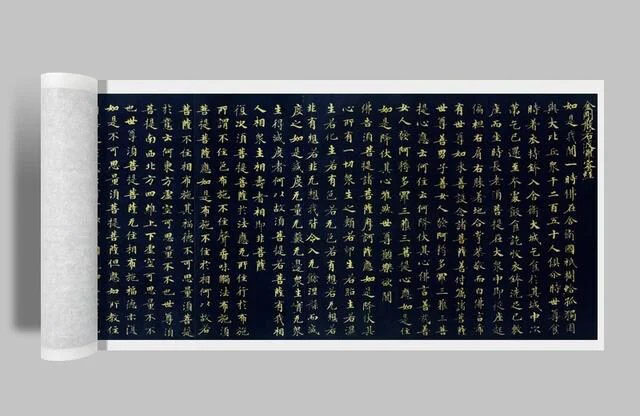 金剛般若波羅蜜經
如是我聞一時佛在舍衛國祇樹給孤獨園
與大比丘衆千二百五十人俱尒時世尊食
時著衣持鉢入舍衛大城乞食於其城中次
第乞已還至本處飯食訖收衣鉢洗足已敷
座而坐時長老湏菩提在大衆中即從座起
偏袒右肩右膝著地合掌恭敬而白佛言希
有世尊如來善護念諸菩薩善付囑諸菩薩
世尊善男子善女人發阿耨多羅三藐三菩
提心應云何住云何降伏其心佛言善哉善
女人發阿耨多羅三藐三菩提心應如是住
如是降伏其心唯然世尊願樂欲聞
佛告湏菩提諸菩薩摩訶薩應如是降伏其
心所有一切衆生之類若卵生若胎生若濕
生若化生若有色若无色若有想若无想若
非有想若非无想我皆令入无餘涅槃而滅
度之如是滅度无量无數无邊衆生實无衆
生得滅度者何以故湏菩提若菩薩有我相
人相衆生相壽者相即非菩薩
復次湏菩提菩薩於法應无所住行於布施
所謂不住色布施不住聲香味觸法布施湏
菩提菩薩應如是布施不住於相何以故若
菩薩不住相布施其福德不可思量湏菩提
於意云何東方虛空可思量不不也世尊湏
菩提南西北方四維上下虛空可思量不不
也世尊湏菩提菩薩无住相布施福德亦復
如是不可思量湏菩提菩薩但應如所教住